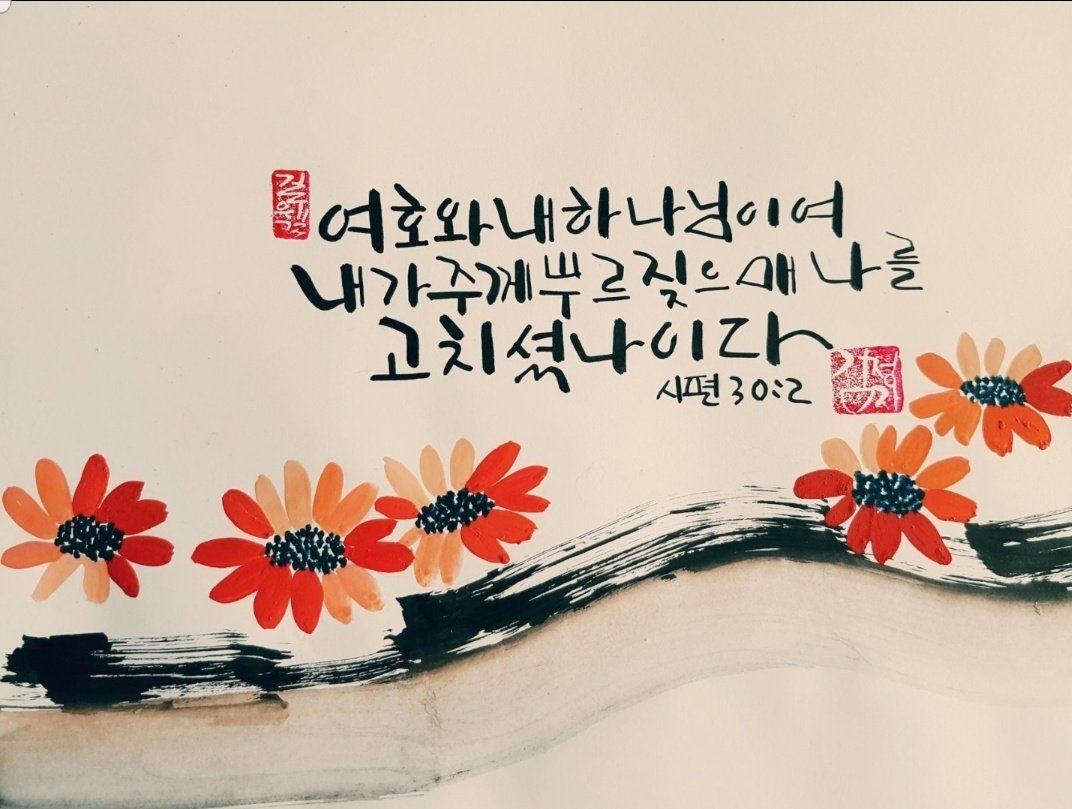 여호와 내 하나님이여
내가 주께 뿌르짖으매 나를
고치셨나이다
시편 30:2